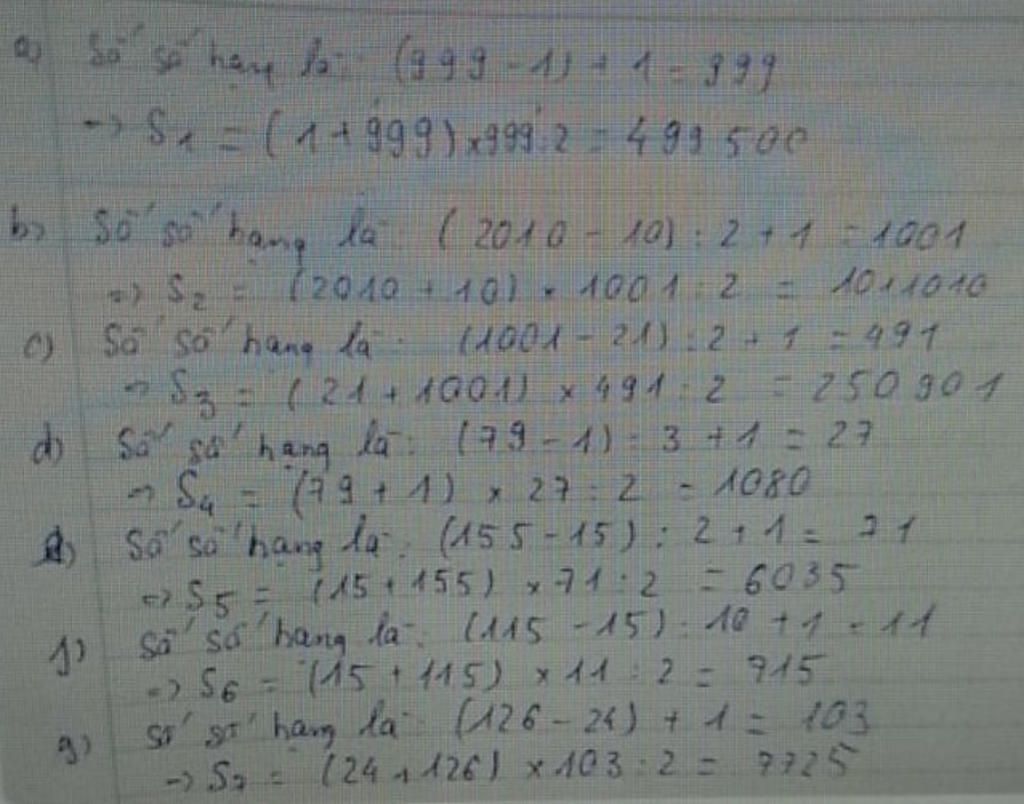 a) Số số hạng là: (999 - 1) + 1 = 999
=> S1 = (1 + 999) x 999 : 2 = 499 500
b) Số số hạng là: (2010 - 10) : 2 + 1 = 1001
=> S2 = (2010 + 10) x 1001 : 2 = 1011010
c) Số số hạng là: (1001 - 21) : 2 + 1 = 491
=> S3 = (21 + 1001) x 491 : 2 = 250 901
d) Số số hạng là: (79 - 1) : 3 + 1 = 27
=> S4 = (79 + 1) x 27 : 2 = 1080
Số số hạng là: (155 - 15) : 2 + 1 = 71
=> S5 = (15 + 155) x 71 : 2 = 6035
f) Số số hạng là: (115 - 15) : 10 + 1 = 11
=> S6 = (15 + 115) x 11 : 2 = 715
g) Số số hạng là: (126 - 24) + 1 = 103
=> S7 = (24 + 126) x 103 : 2 = 7725